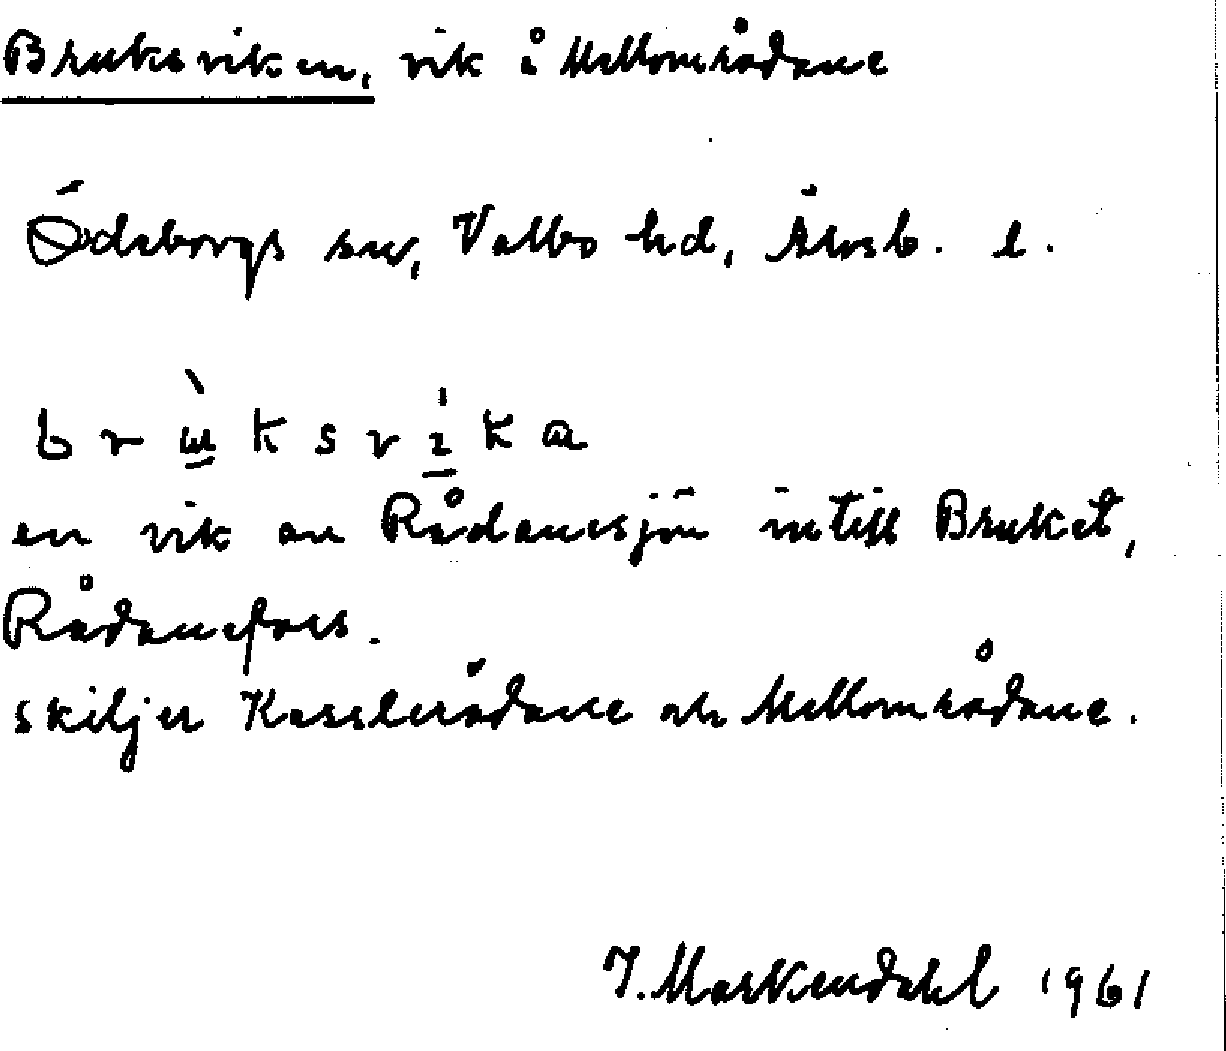 Bruksviken, vik å Mellområdane
Ödeborgs sn, Valbo hd, Älvsb. l.
b r ù k s v í k a
en vik av Rådanesjön intill Bruket,
Rådanefors.
skiljer Kasslerådane och Mellområdane.
J. Markendahl 1961